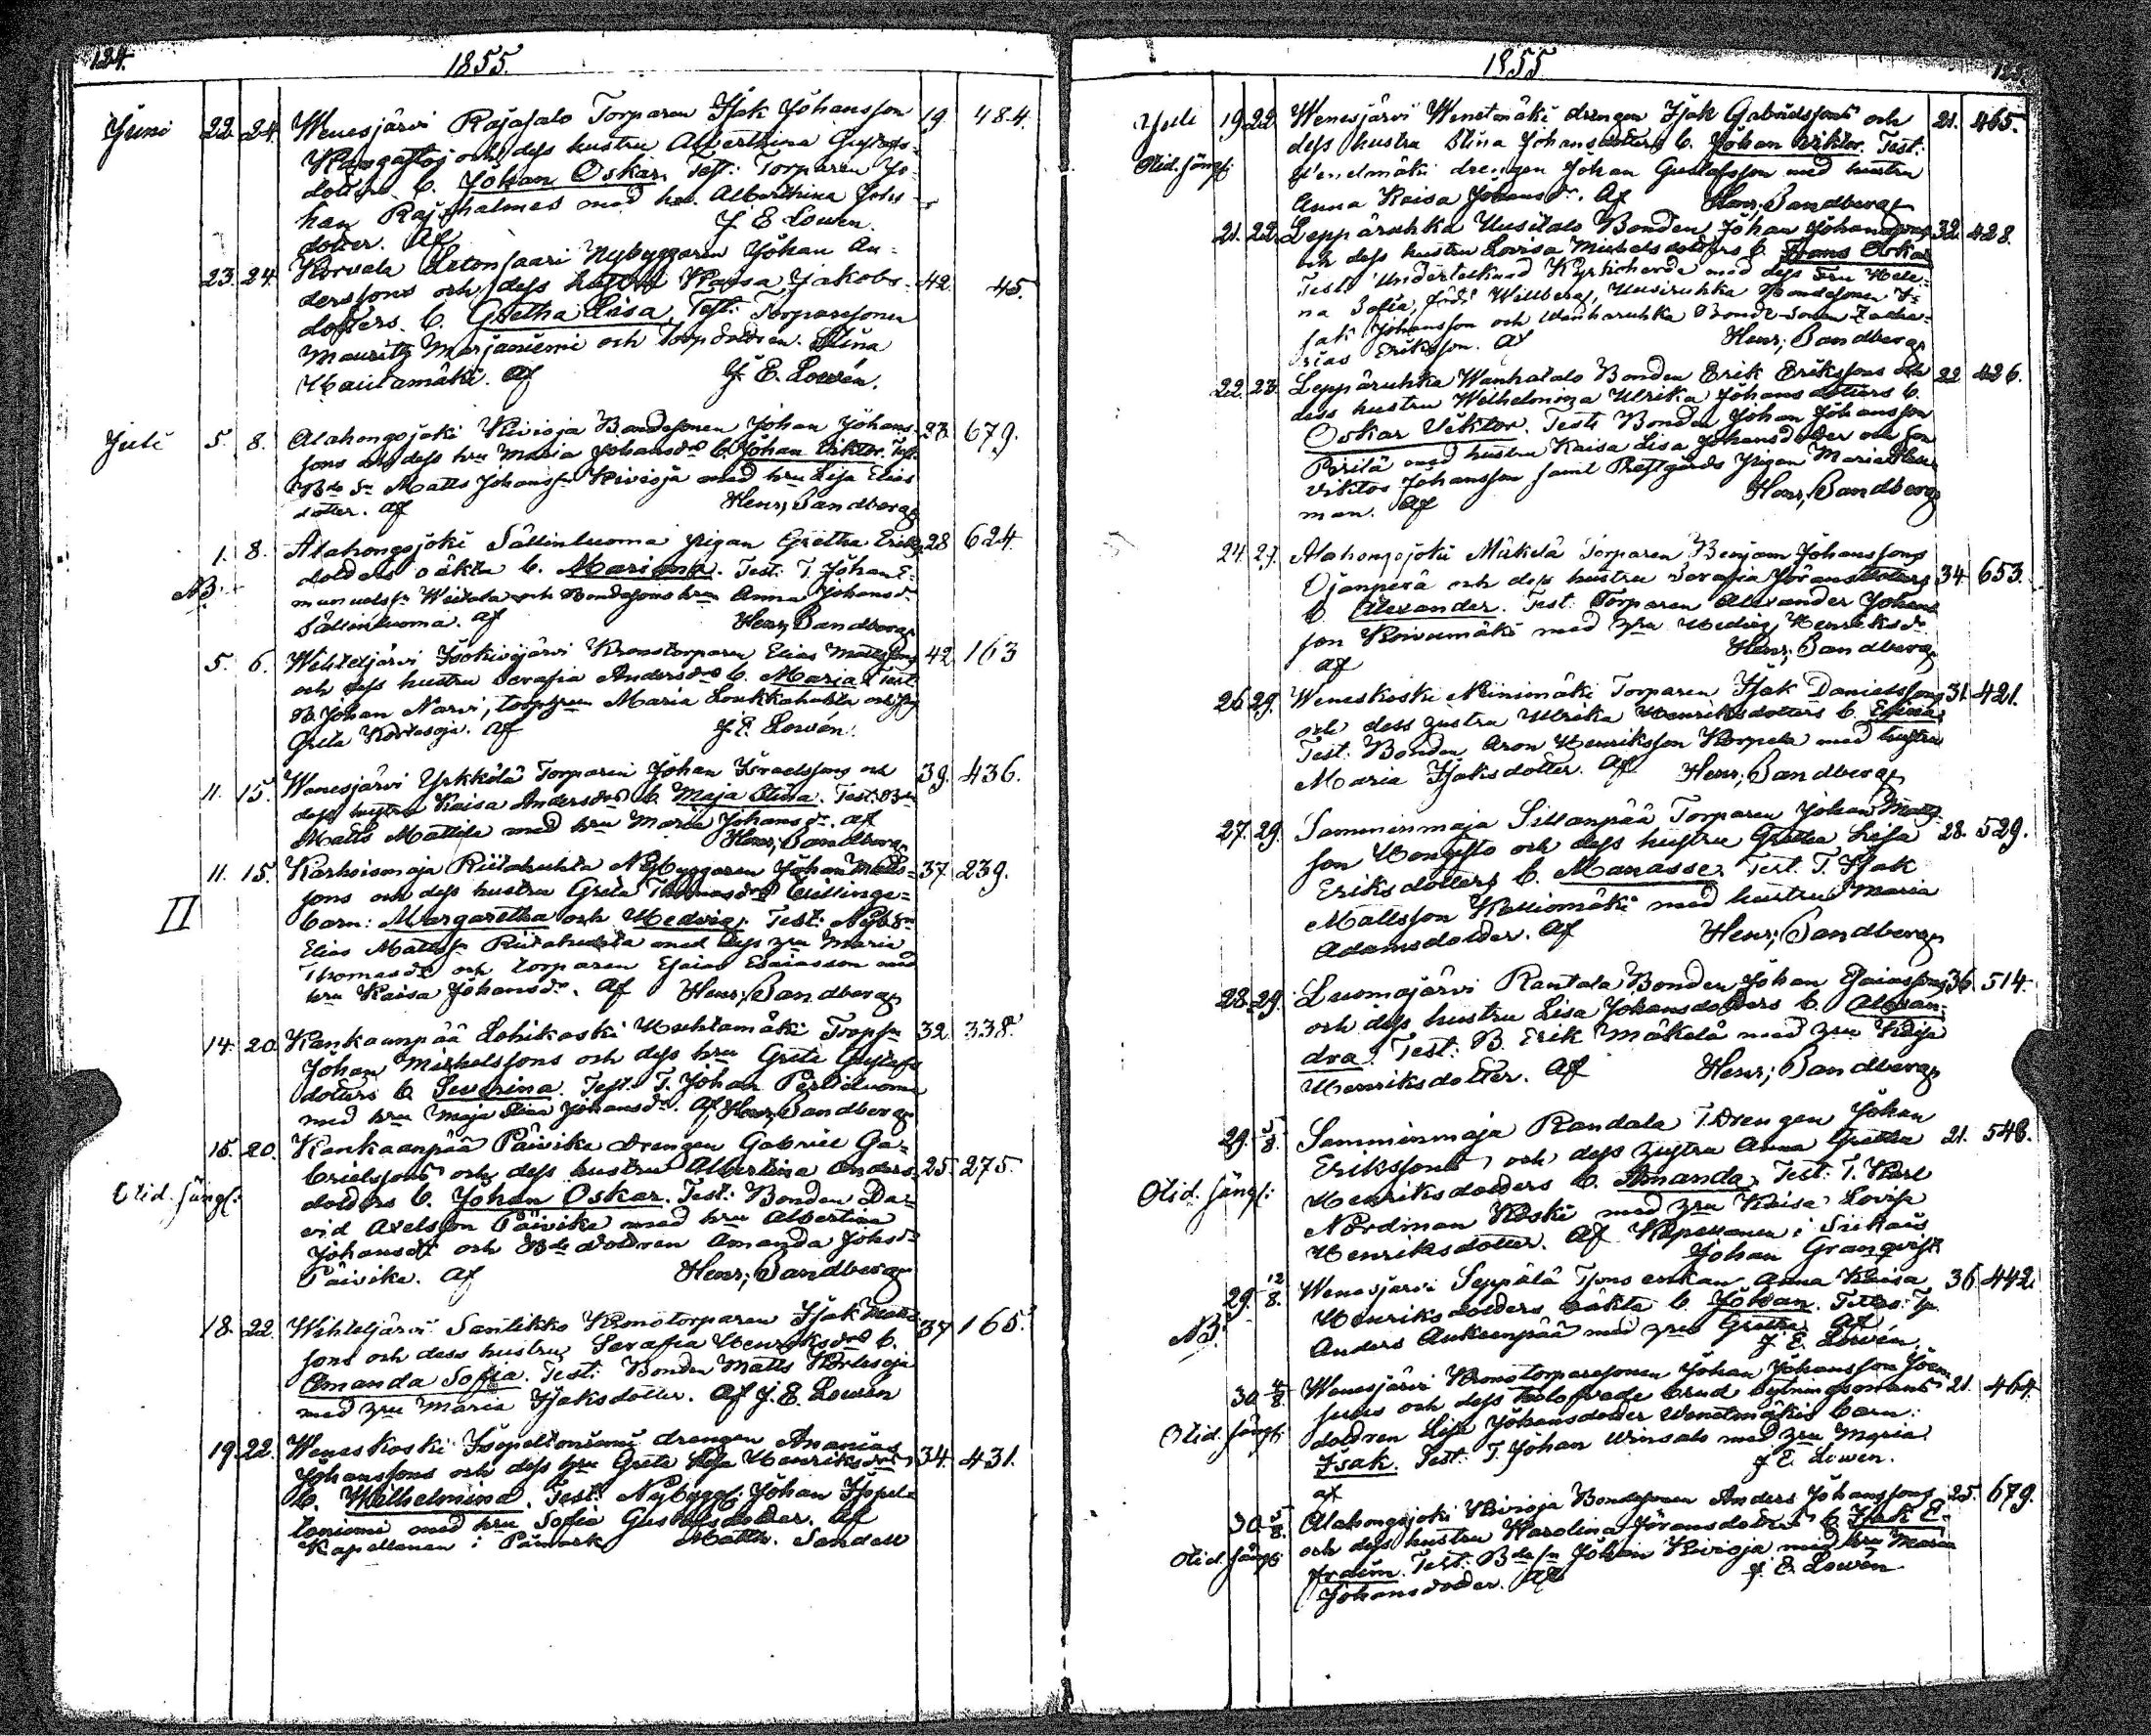 124.
1855.
Juni 22. 24. Wenesjärvi Rajasalo Torparen Isak Johansson 19. 484.
Kangastoj och dess hustru Alberthina Gustafs-
dotters b. Johan Oskar. Test: Torparen Jo-
han Rajahalmes med hu. Alberthina Johs
dotter. Af J E Lowen.
23. 24. Korvala Letonsaari Nybyggaren Johan An-
derssons och dess hustru Kaisa Jakobs- 42. 45.
dotters b. Gretha Lisa. Test: Torparesonen
Mauritz Marjaniemi och Torpdottren Stina
Hautamäki. Af J. E. Lowén.
Juli 5. 8. Alahongojoki Kivioja Bondesonen Johan Johans- 23 679.
sons och dess hru Maria Johansdrs b. Johan Viktor. Test:
Bde Sn Matts Johanss. Kivioja med hru Lisa Elias
dotter. Af Henr; Sandberg
1. 8. Alahongojoki Sällinluoma pigan Gretha Eriks 28 624.
NB. dotters oäkta b. Mariana. Test: T. Johan E-
manuelsn Weitala och Bondesons hru Anna Johansdr
Sällinluoma. Af Henr; Sandberg
5. 6. Wihteljärvi Isokivijärvi Kronotorparen Elias Mattssons 42 163
och dess hustru Serafia Andersdrs b. Maria. Test:
B. Johan Narvi, torp hrun Maria Loukkahuhta och pig
Greta Kortesoja. Af J. E. Lowén.
11. 15. Wenesjärvi Yrkkölä Torparen Johan Israelssons och 39. 436.
dess hustru Kaisa Andersdrs b. Maja Stina. Test: Bdn
Matts Mattila med hru Maria Johansdr. Af
Henr; Sandberg
11. 15. Karhoismaja Riitahuhta Nybyggaren Johan Matts- 37 239.
II sons och dess hustru Greta Thomasdrs tvillinge-
barn: Margaretha och Hedvig. Test: Nyb.Sn
Elias Mattss. Riitahuhta med dess hru Maria
Thomasdr och torparen Esaias Esaiasson med
hru Kaisa Johansdr. Af Henr; Sandberg
14. 20. Kankaanpää Lohikoski Huhtamäki Torpsn 32. 338.
Johan Michelssons och dess hru Greta Gustafs
dotters b. Severina. Test: T. Johan Perttiluoma
med hru Maja Stina Johansdr. Af Henr; Sandberg
15. 20. Kankaanpää Päivike Drengen Gabriel Ga-
brielssons och dess hustru Albertina Anders- 25 275.
Otid. sängl: dotters b. Johan Oskar. Test: Bonden Da-
vid Axelsson Päivike med hru Albertina
Johansdr och Bde dottren Amanda Johsdr
Päivike. Af Henr; Sandberg
18. 22. Wihteljärvi Santikko Kronotorparen Isak Matts 37 165.
sons och dess hustru Serafia Henriksdrs b.
Amanda Sofia. Test: Bonden Matts Kortesoja
med hru Maria Isaksdotter. Af J. E. Lowén
19. 22. Weneskoski Isopeltoniemi drengen Ananias
Johanssons och dess hru Greta Lisa Henriksdrs 34 431.
b. Wilhelmina. Test: Nybygg: Johan Ispel-
toniemi med hru Sofia Gustafsdotter. Af
Kapellanen i Påmark Matth. Sandell
1855
125.
Juli 19 22 Wenesjärvi Wenetmäki drengen Isak Gabrielssons och 21. 465.
Otid. sängl: dess hustru Stina Johansdotters b. Johan Viktor. Test:
Wenetmäki drengen Johan Gustafsson med hustru
Anna Kaisa Johansdr. Af Henr; Sandberg
21. 22. Leppäruhka Uusitalo Bonden Johan Johanssons 32. 428.
och dess hustru Lovisa Michelsdotters b. Frans Oskar
Test: Undertecknad Kyrkoherde med dess Fru Hele-
na Sofia, född Willberg, Uusiruhka Bondesonen I-
sak Johansson och Wanharuhka Bonde-Sonen Zacha-
rias Eriksson. Af Henr; Sandberg
22. 23. Leppäruhka Wanhatalo Bonden Erik Erikssons och 22 426.
dess hustru Wilhelmina Ulrika Johansdotters b.
Oskar Viktor. Test: Bonden Johan Johansson
Perilä med hustru Kaisa Lisa Johansdotter och son
Viktor Johansson samt Prestgårds Pigan Maria
man. Af Henr; Sandberg
24. 29. Alahongojoki Mäkelä Torparen Benjam Johanssons
Ojanperä och dess hustru Serafia Jöransdotters 34 653.
b. Alexander. Test: Torparen Alexander Johans
son Koivumäki med hru Hedvig Henriksdr
Af Henr; Sandberg
26 29. Weneskoski Niinimäki Torparen Isak Danielssons 31. 421.
och dess hustru Ulrika Henriksdotters b. Elina
Test: Bonden Aron Henriksson Korpela med hustru
Maria Isaksdotter. Af Henr; Sandberg
27. 29. Samminmaja Sillanpää Torparen Johan Matts
son Hongisto och dess hustru Gretha Lisa 28. 529.
Eriksdotters b. Manasse. Test: T. Isak
Mattsson Kalliomäki med hustru Maria
Adamsdotter. Af Henr; Sandberg
28. 29. Luomajärvi Rantala Bonden Johan Esaiassons 36. 514.
och dess hustru Lisa Johansdotters b. Alexan-
dra. Test: B. Erik Mäkelä med hru Kaisa
Henriksdotter. Af Henr; Sandberg
29. 5/8. Samminmaja Randala T.Drengen Johan
Erikssons och dess hustru Anna Gretha 21. 548.
Otid. sängl: Henriksdotters b. Amanda. Test: T. Karl
Nordman Koski med hru Kaisa Lovisa
Henriksdotter. Af Kapellanen i Siikais
Johan Granqvist
29. 12/8. Wenesjärvi Seppälä Tjens enkan Anna Kaisa 36. 442.
NB. Henriksdotters oäkta b. Johan. Test: Tp.
Anders Aukeenpää med hru Gretha. Af
J. E. Lowén.
30 4/8. Wenesjärvi Kronotorparesonen Johan Johansson Joen-
suus och dess trolofvade brud Sytningsmans 21. 464.
Otid. sängl: dottren Lisa Johansdotter Wenetmäkis barn:
Isak. Test: T. Johan Winsalo med hru Maria
af J E. Lowén.
30 5/8. Alahongojoki Kivioja Bondesonen Anders Johanssons 25. 679.
Otid. sängl: och dess hustru Karolina Jöransdotters b. Isak E-
fraim. Test: Bde Sn Johan Kivioja med hru Maria
Johansdotter. Af J. E. Lowén